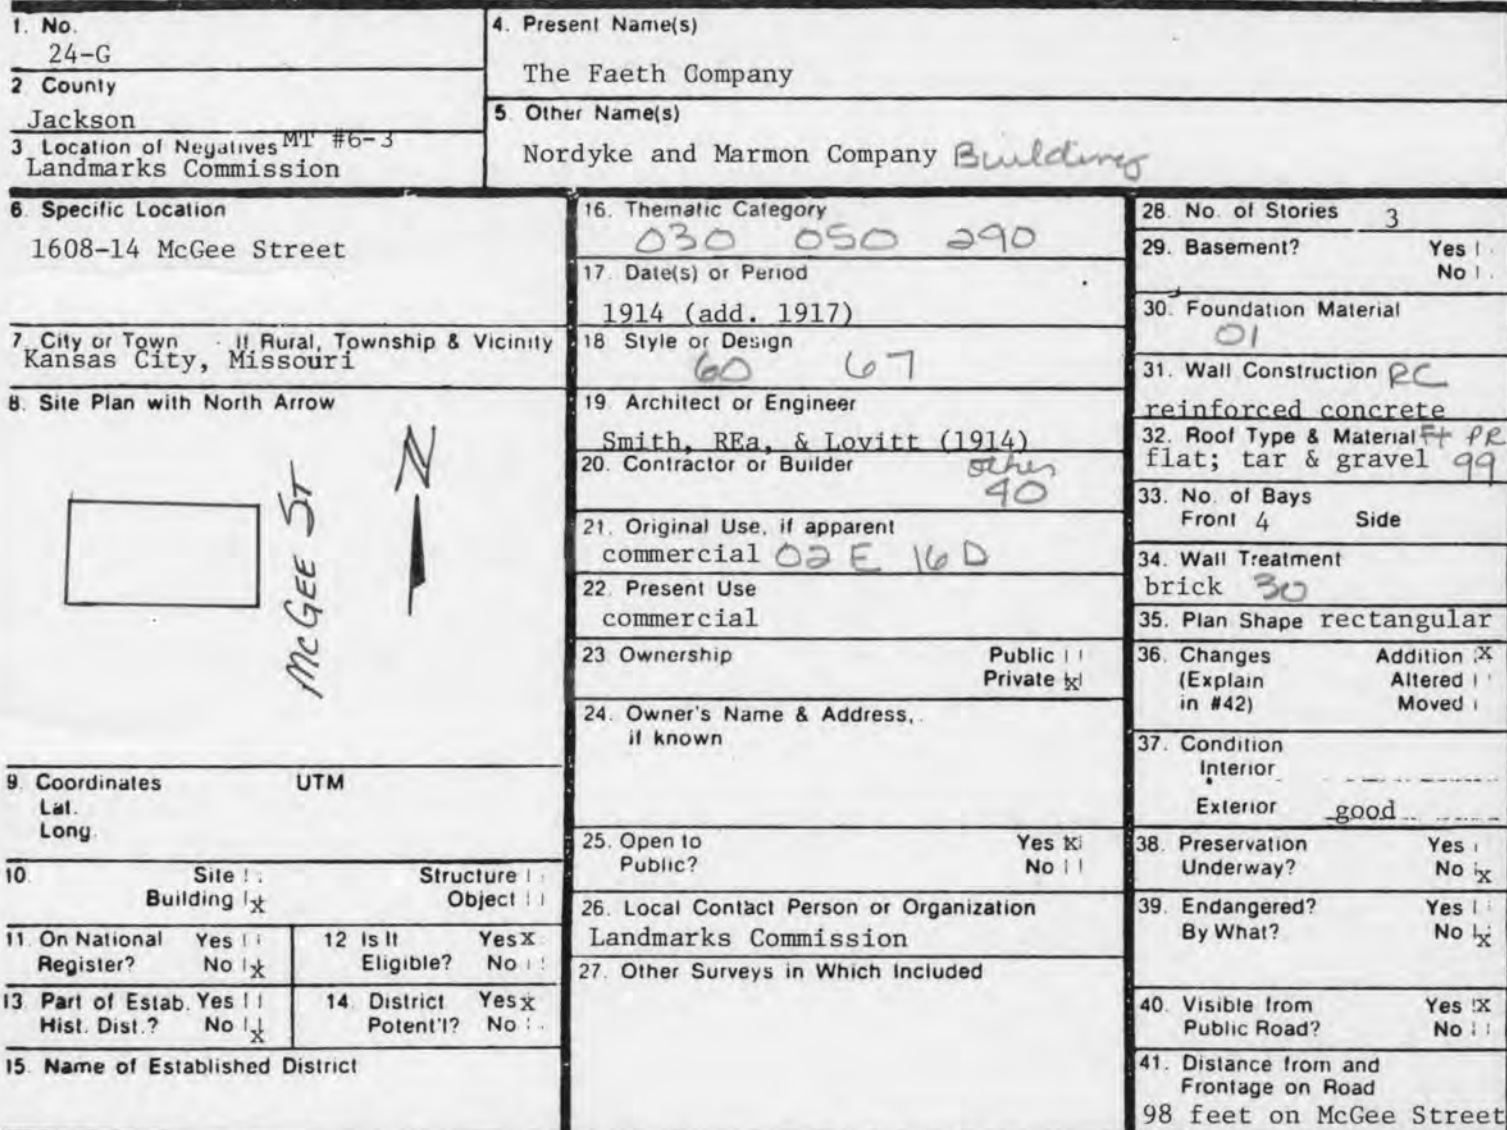 1. No.
24-G
2 County
Jackson
3 Location of Negatives MT #6-3
Landmarks Commission
4. Present Name(s)
The Faeth Company
5 Other Name(s)
Nordyke and Marmon Company Building
6. Specific Location
1608-14 McGee Street
7 City or Town If Rural, Township & Vicinity
Kansas City, Missouri
8. Site Plan with North Arrow
McGEE ST
N
9. Coordinates UTM
Lat.
Long.
10. Site Structure
Building x Object
11. On National Yes
Register? No x
12 Is It Yes X
Eligible? No
13. Part of Estab. Yes
Hist. Dist.? No x
14. District Yes x
Potent'l? No
15. Name of Established District
16. Thematic Category
030 050 290
17. Date(s) or Period
1914 (add. 1917)
18 Style or Design
60 67
19. Architect or Engineer
Smith, REa, & Lovitt (1914)
20. Contractor or Builder other
40
21. Original Use, if apparent
commercial 02 E 16 D
22. Present Use
commercial
23 Ownership Public
Private x
24. Owner's Name & Address,
if known
25. Open to Yes x
Public? No
26. Local Contact Person or Organization
Landmarks Commission
27. Other Surveys in Which Included
28. No. of Stories 3
29. Basement? Yes
No
30. Foundation Material
01
31. Wall Construction RC
reinforced concrete
32. Roof Type & Material Ft PR
flat; tar & gravel 99
33. No. of Bays
Front 4 Side
34. Wall Treatment
brick 30
35. Plan Shape rectangular
36. Changes Addition X
(Explain Altered
in #42) Moved
37. Condition
Interior
Exterior good
38. Preservation Yes
Underway? No x
39. Endangered? Yes
By What? No x
40. Visible from Yes X
Public Road? No
41. Distance from and
Frontage on Road
98 feet on McGee Street